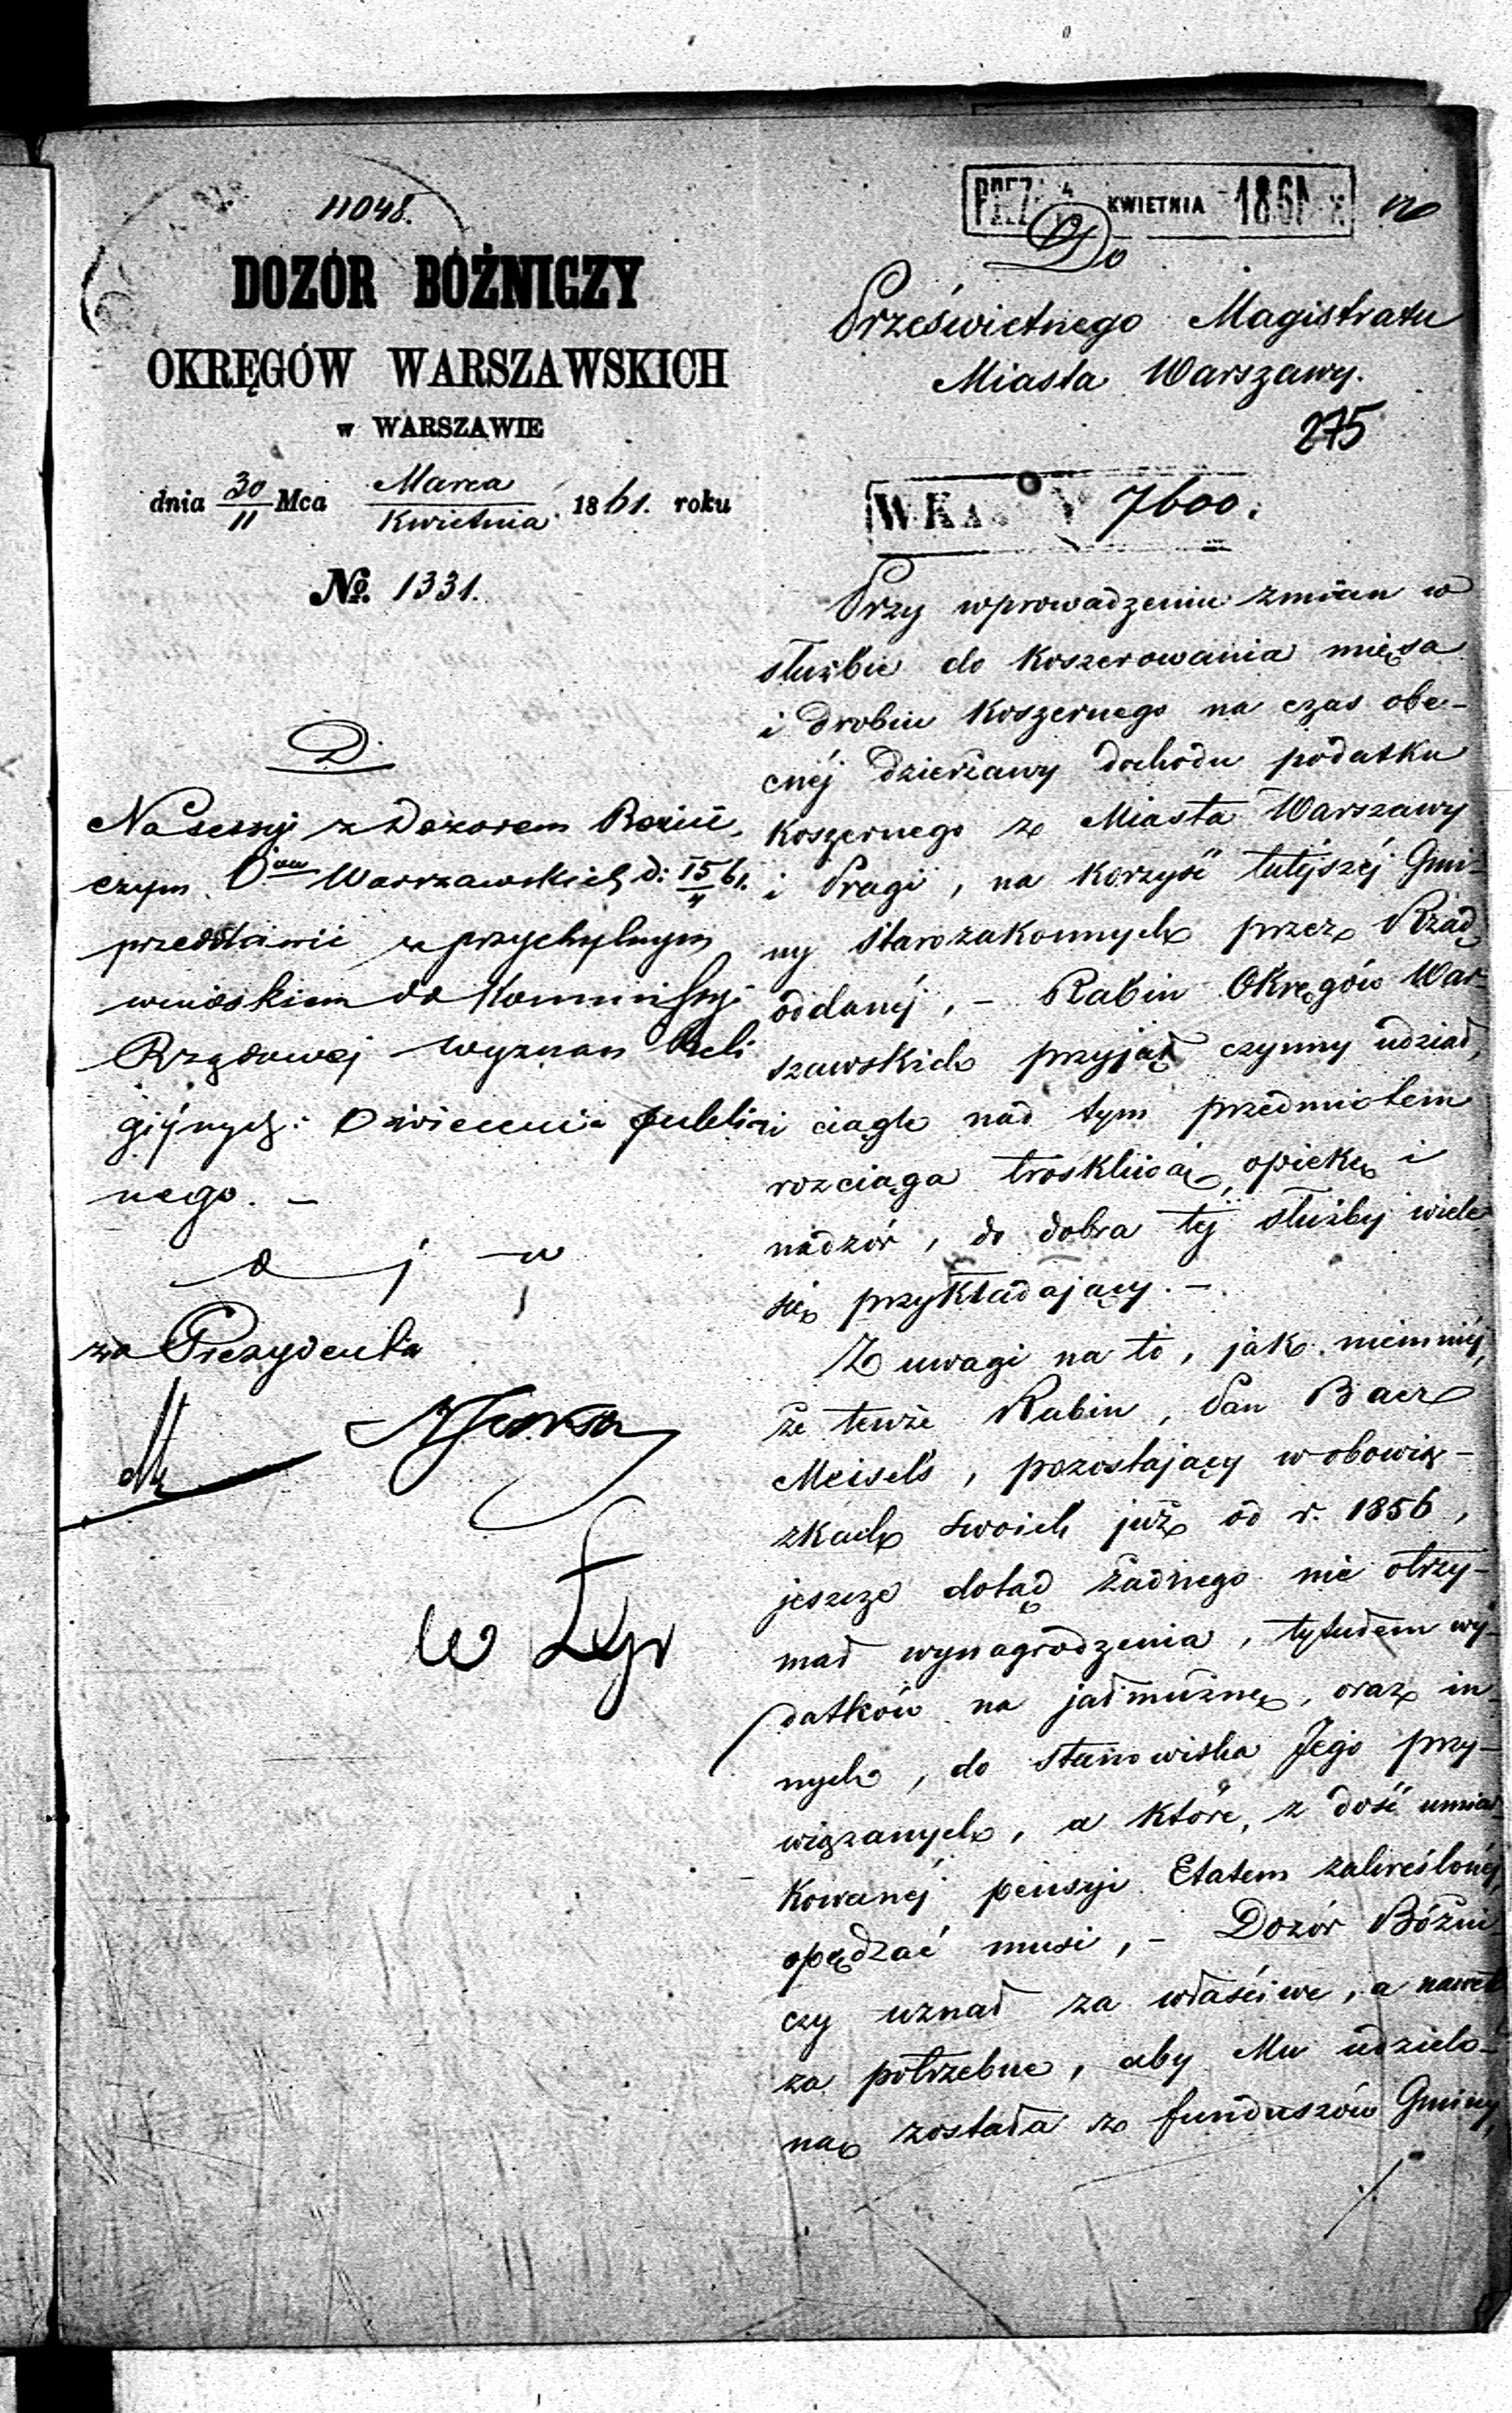 11048.
DOZÓR BÓŻNICZY
OKRĘGÓW WARSZAWSKICH
w WARSZAWIE
dnia 30/11 Mca Marca/Kwietnia 1861. roku
№ 1331.
D.
Na sessyi z Dozorem Bożni-
czym Warszawskich d: 15/4 61.
przedstawić z przychylnym
wnioskiem do Kommissyi
Rządowej Wyznań Reli
gijnych i Oświecenia Publicz
nego. –
za Prezydenta
KWIETNIA 1861
Do
Prześwietnego Magistratu
Miasta Warszawy.
275
7600.
Przy wprowadzeniu zmian w
służbie do koszerowania mięsa
i drobiu koszernego na czas obe-
cnéj dzierżawy dochodu podatku
koszernego z Miasta Warszawy
i Pragi, na korzyść tutéjszéj Gmi-
ny Starozakonnych przez Rząd
oddanéj, – Rabin Okręgów War-
szawskich przyjął czynny udział,
i ciągle nad tym przedmiotem
rozciąga troskliwą opiekę i
nadzór, do dobra téj służby wiele
się przykładający. –
Z uwagi na to, jak niemniéj,
że tenże Rabin, Pan Baer
Meisels, pozostający w obowią-
zkach swoich już od r. 1856,
jeszcze dotąd żadnego nie otrzy-
mał wynagrodzenia, tytułem wy-
datków na jałmużnę, oraz in-
nych, do stanowiska Jego przy-
wiązanych, a które, z dość umiar
kowanéj pensyi Etatem zakreślonéj,
opędzać musi, – Dozór Bóżni
czy uznał za właściwe, a nawet
za potrzebne, aby Mu udzielo-
ną została z funduszów Gminy,
./.